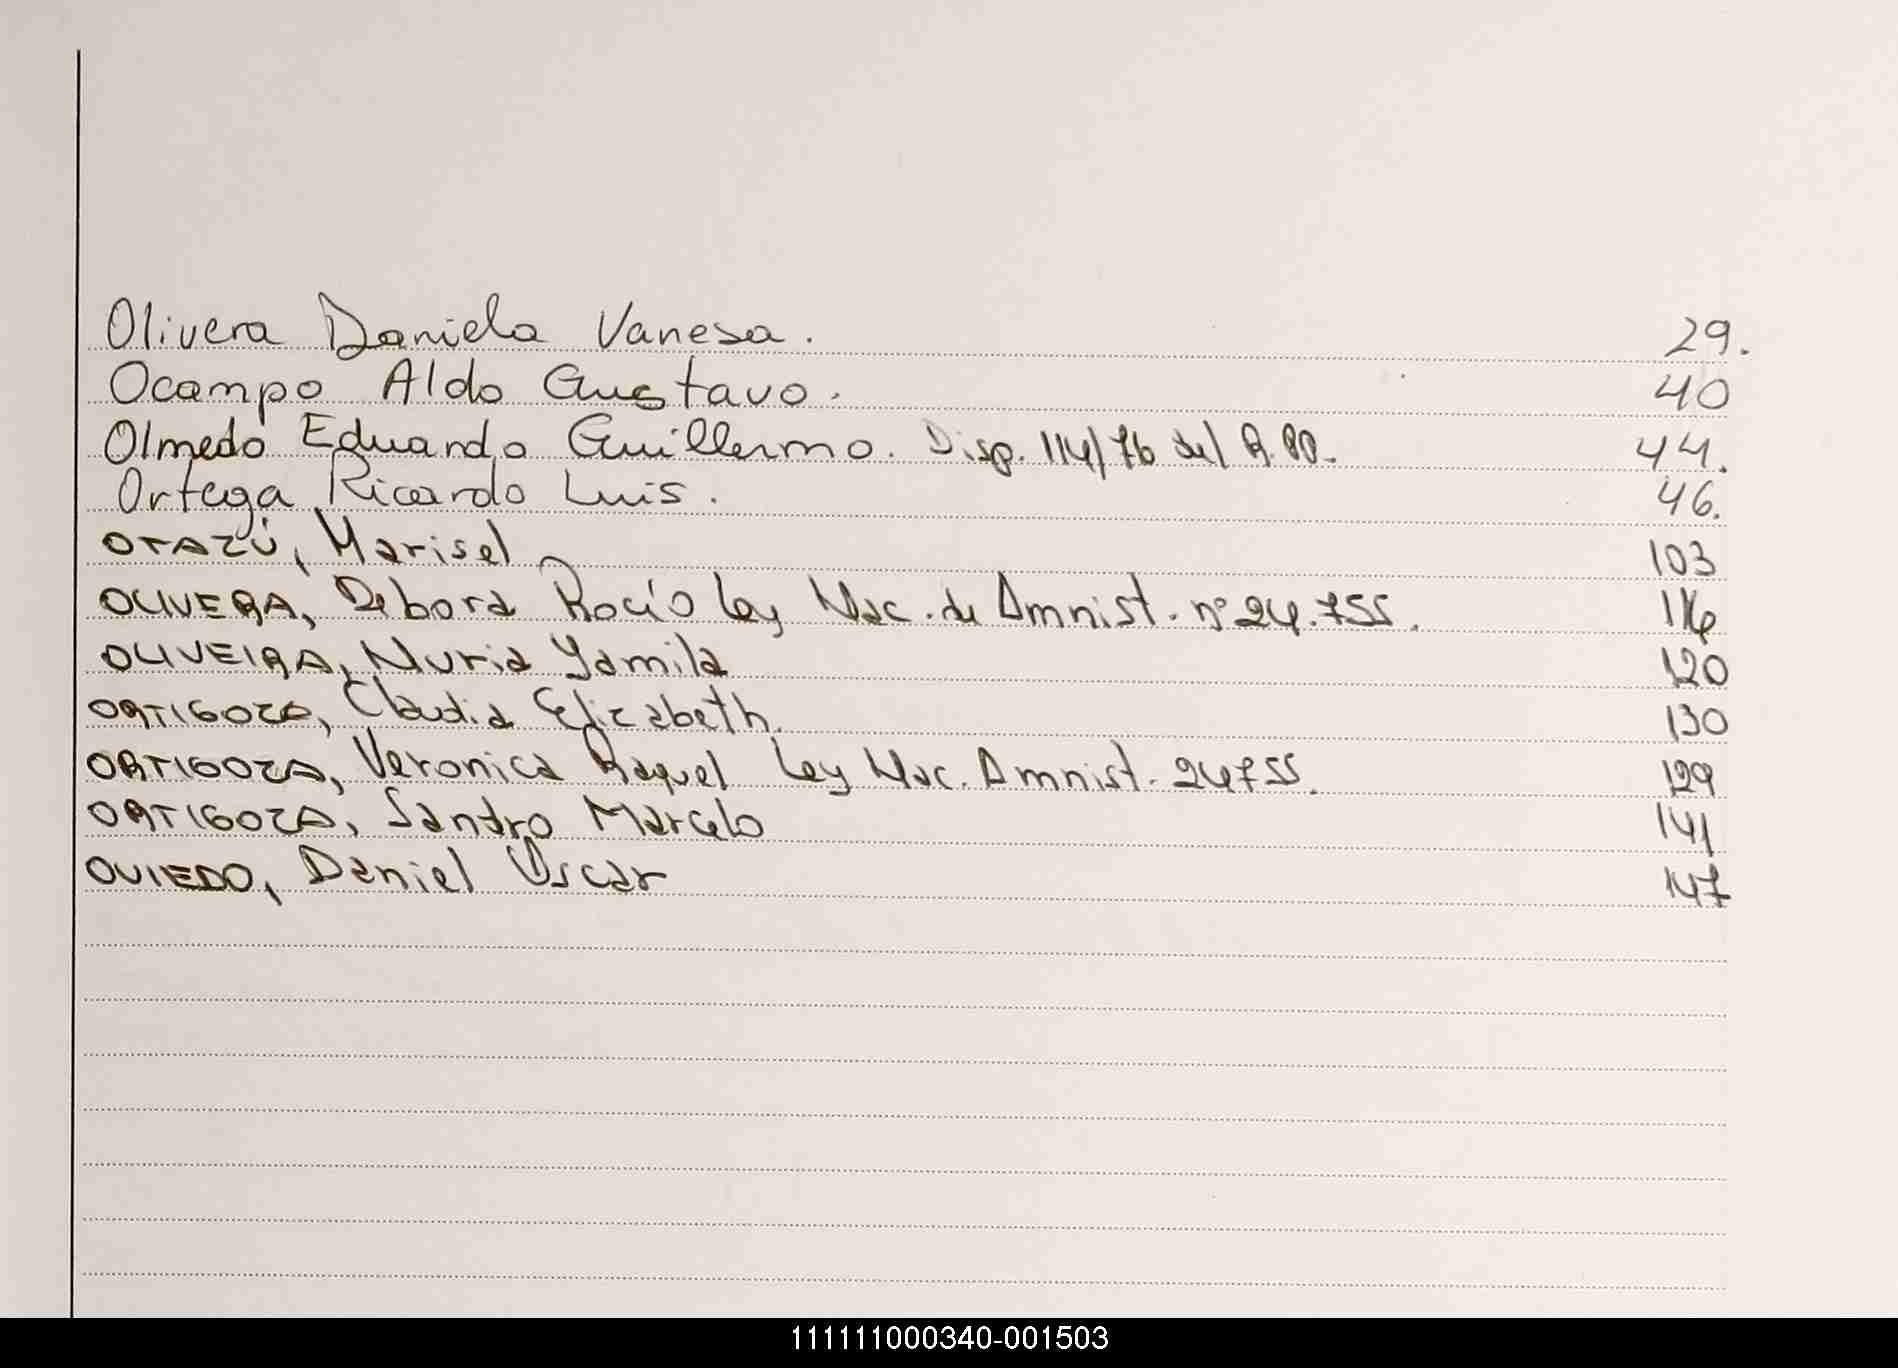 Olivera Daniela Vanesa. 29.
Ocampo Aldo Gustavo. 40
Olmedo Eduardo Guillermo. Disp. 114/76 del R.PP. 44.
Ortega Ricardo Luis. 46.
OTAZÚ, Marisel 103
OLIVERA, Debora Rocío Ley Nac. de Amnist. nº 24.755. 116
OLIVEIRA, Nuria Yamila 120
ORTIGOZA, Claudia Elizabeth. 130
ORTIGOZA, Veronica Raquel Ley Nac. Amnist. 24755. 129
ORTIGOZA, Sandro Marcelo 141
OVIEDO, Daniel Oscar 147
111111000340-001503